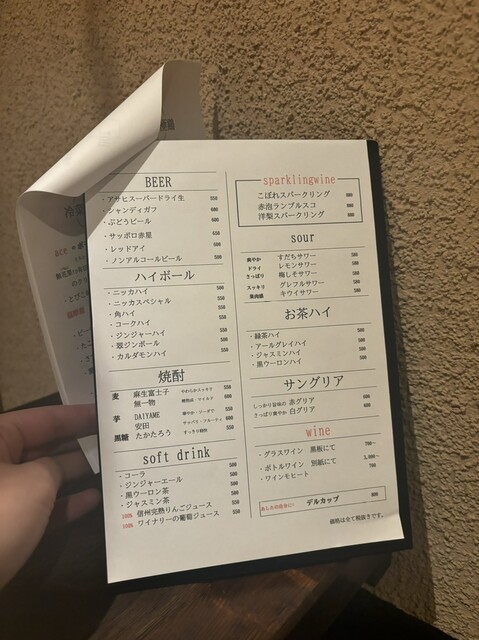 BEER
・アサヒスーパードライ生 550
・シャンディガフ 600
・ぶどうビール 600
・サッポロ赤星 650
・レッドアイ 600
・ノンアルコールビール 500
ハイボール
・ニッカハイ 500
・ニッカスペシャル 550
・角ハイ
・コークハイ
・ジンジャーハイ
・翠ジンボール
・カルダモンハイ
焼酎
麦 麻生富士子 やわらかスッキリ 550
無一物 600
芋 DAIYAME 華やか・ソーダで 550
安田 600
黒糖 たかたろう すっきり軽快 550
soft drink
・コーラ 500
・ジンジャーエール 500
・黒ウーロン茶 500
・ジャスミン茶 500
100% 信州完熟りんごジュース 550
100% ワイナリーの葡萄ジュース 550
sparklingwine
こぼれスパークリング
赤泡ランブルスコ
洋梨スパークリング
sour
爽やか すだちサワー
ドライ レモンサワー
さっぱり 梅しそサワー
スッキリ グレフルサワー
果肉感 キウイサワー
お茶ハイ
・緑茶ハイ 500
・アールグレイハイ 500
・ジャスミンハイ 500
・黒ウーロンハイ 500
サングリア
しっかり旨味の 赤グリア 600
さっぱり爽やか 白グリア 600
wine
・グラスワイン 黒板にて 700〜
・ボトルワイン 別紙にて
・ワインモヒート 700
あしたの自分に! デルカップ
価格は全て税抜きです。